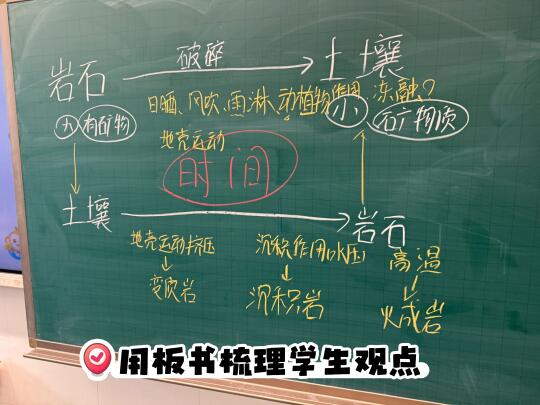 岩石 破碎 土壤
日晒、风吹、雨淋、动植物作用 冻融?
大 有矿物 小 矿物质
地壳运动
时间
土壤 岩石
地壳运动挤压 沉积作用水压 高温
变质岩 沉积岩 火成岩
用板书梳理学生观点